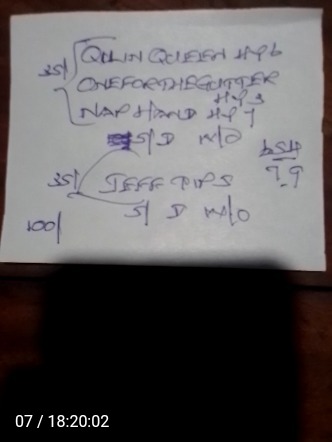 35/ QUIN QUEEN HY 6
ONEFORTHEGUTTER
HY 3
NAP HAND HY 7
5/ D W/O
654
7.9
35/ JEFF TIPS
5/ D W/O
100/
07 / 18:20:02